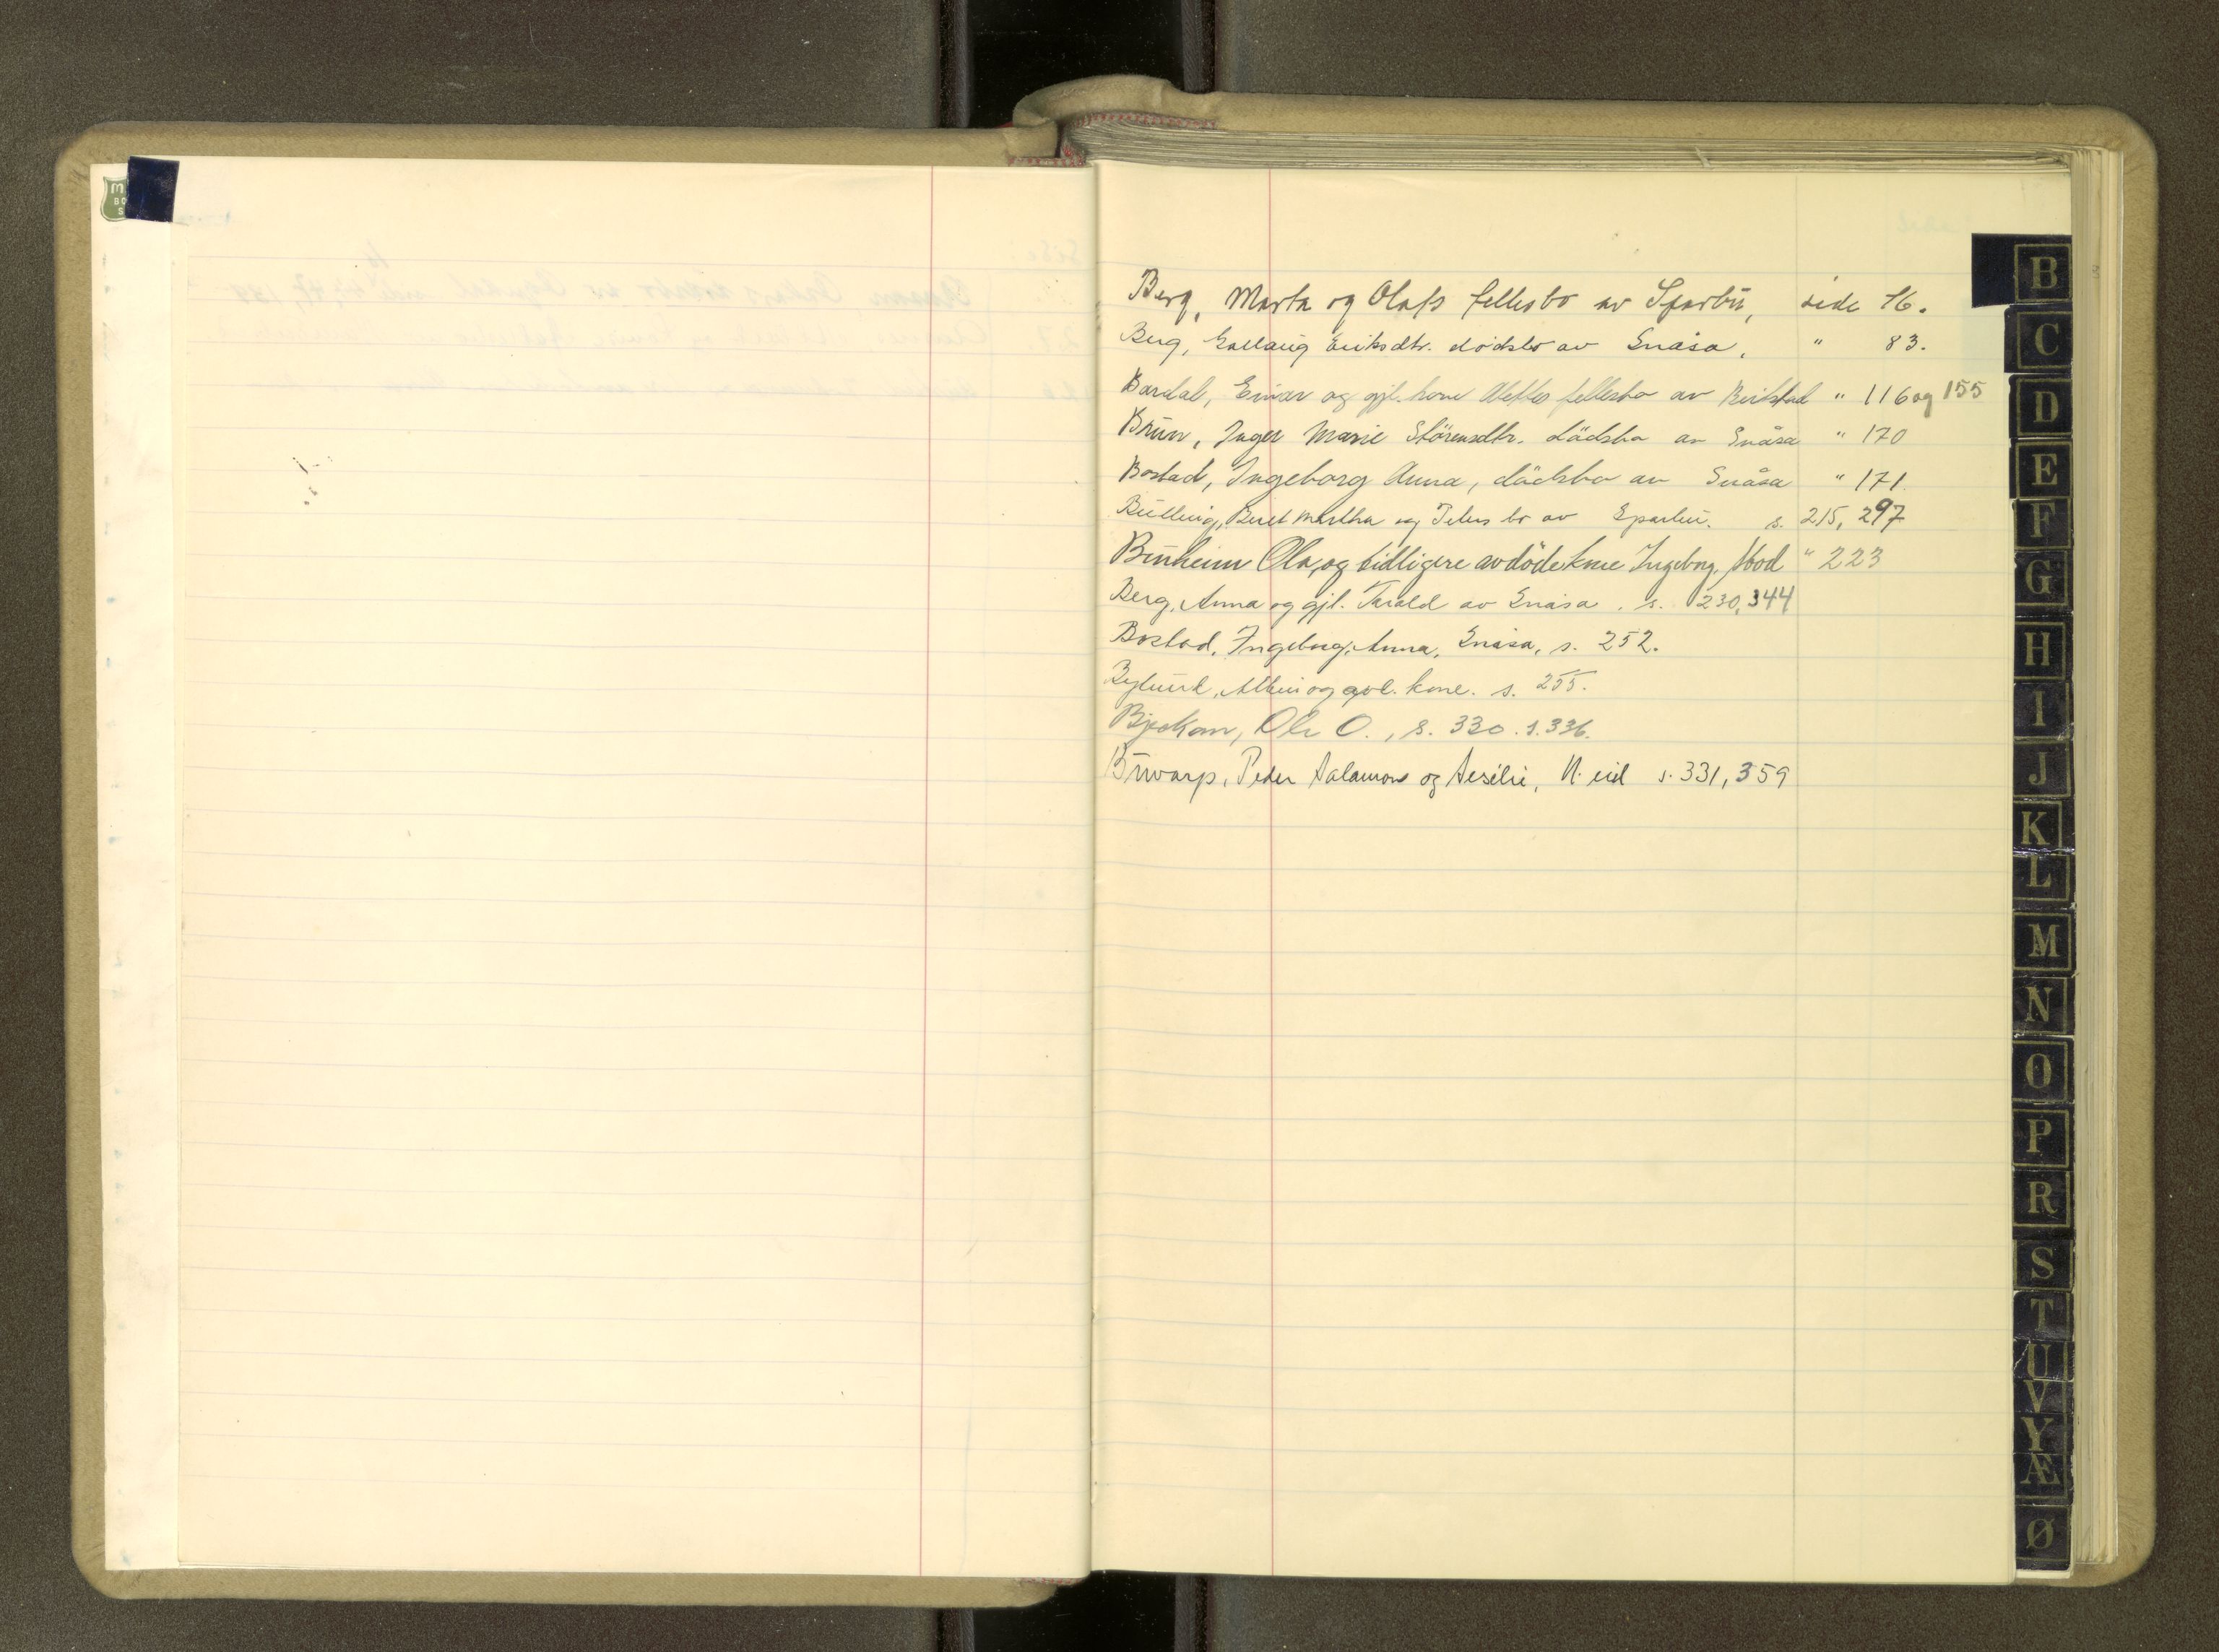 Berg, Marta og Olafs fellesbo av Sparbu, side 76.
Berg, Eriksdtr. dödsbo av Snåsa, " 83.
Bardal, Einar og gjl. kone Alettes fellesbo av Beitstad " 116 og 155
Brun, Inger Marie Störensdtr. dödsbo av Snåsa " 170
Bostad, Ingeborg Anna, dödsbo av Snåsa " 171.
Bulling, Beret Martha og Peters bo av Sparbu. s. 215, 297
Buheim Ola, og tidligere avdöde kone Ingeborg, Stod " 223
Berg, Anna og gjl. Tarald av Snåsa. s. 230, 344
Bostad, Ingeborg Anna, Snåsa, s. 252.
Bylund, Albin og kone. s. 255.
Ole O., s. 330. s. 336.
Buvarp, Peder Salamons og Aesilie, N. eid s. 331, 359
B
C
D
E
F
G
H
I
J
K
L
M
N
O
P
R
S
T
U
V
Y
Æ
Ø